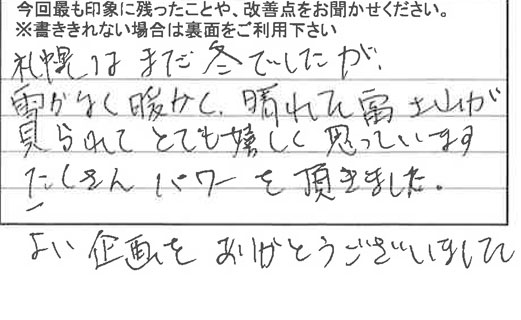 今回最も印象に残ったことや、改善点をお聞かせください。
※書ききれない場合は裏面をご利用下さい
札幌はまだ冬でしたが、
雪がなく暖かく、晴れて富士山が
見られてとても嬉しく思っています
たくさんパワーを頂きました。
よい企画をありがとうございましたて